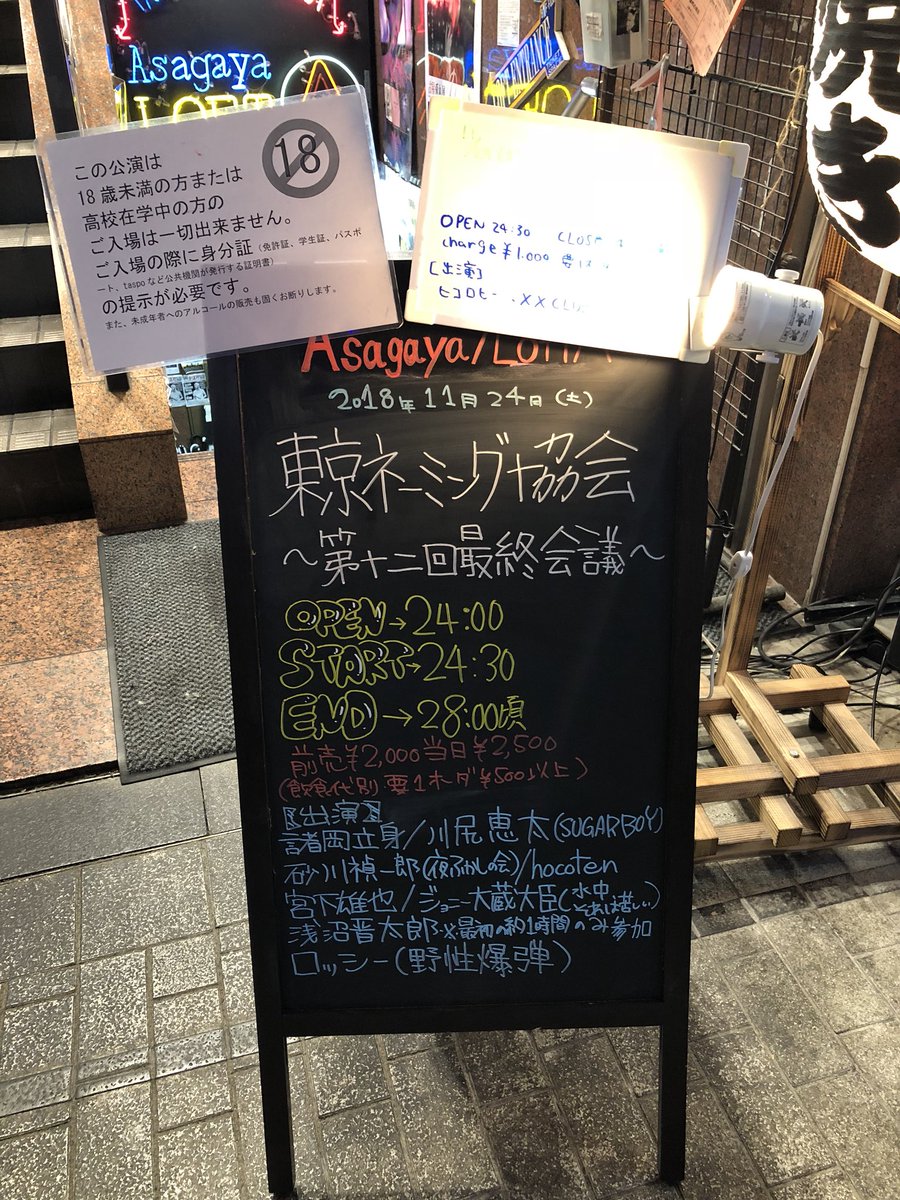 Asagaya
この公演は
18歳未満の方または
高校在学中の方の
ご入場は一切出来ません。
ご入場の際に身分証（免許証、学生証、パスポ
ート、taspoなど公共機関が発行する証明書）
の提示が必要です。
また、未成年者へのアルコールの販売も固くお断りします。
18
OPEN 24:30
charge ¥1.000
[出演]
ヒコロヒー
Asagaya/
2018年11月24日(土)
東京ネーミング協会
〜第十二回最終会議〜
OPEN→24:00
START→24:30
END→28:00頃
前売¥2,000当日¥2,500
(飲食代別 要1オーダ¥500以上)
【出演】
諸岡立身/川尻恵太(SUGARBOY)
砂川禎一郎(夜ふかしの会)/hocoten
宮下雄也/ジョニー大蔵大臣(水中、それは苦しい)
浅沼晋太郎※最初の約1時間のみ参加
ロッシー(野性爆弾)